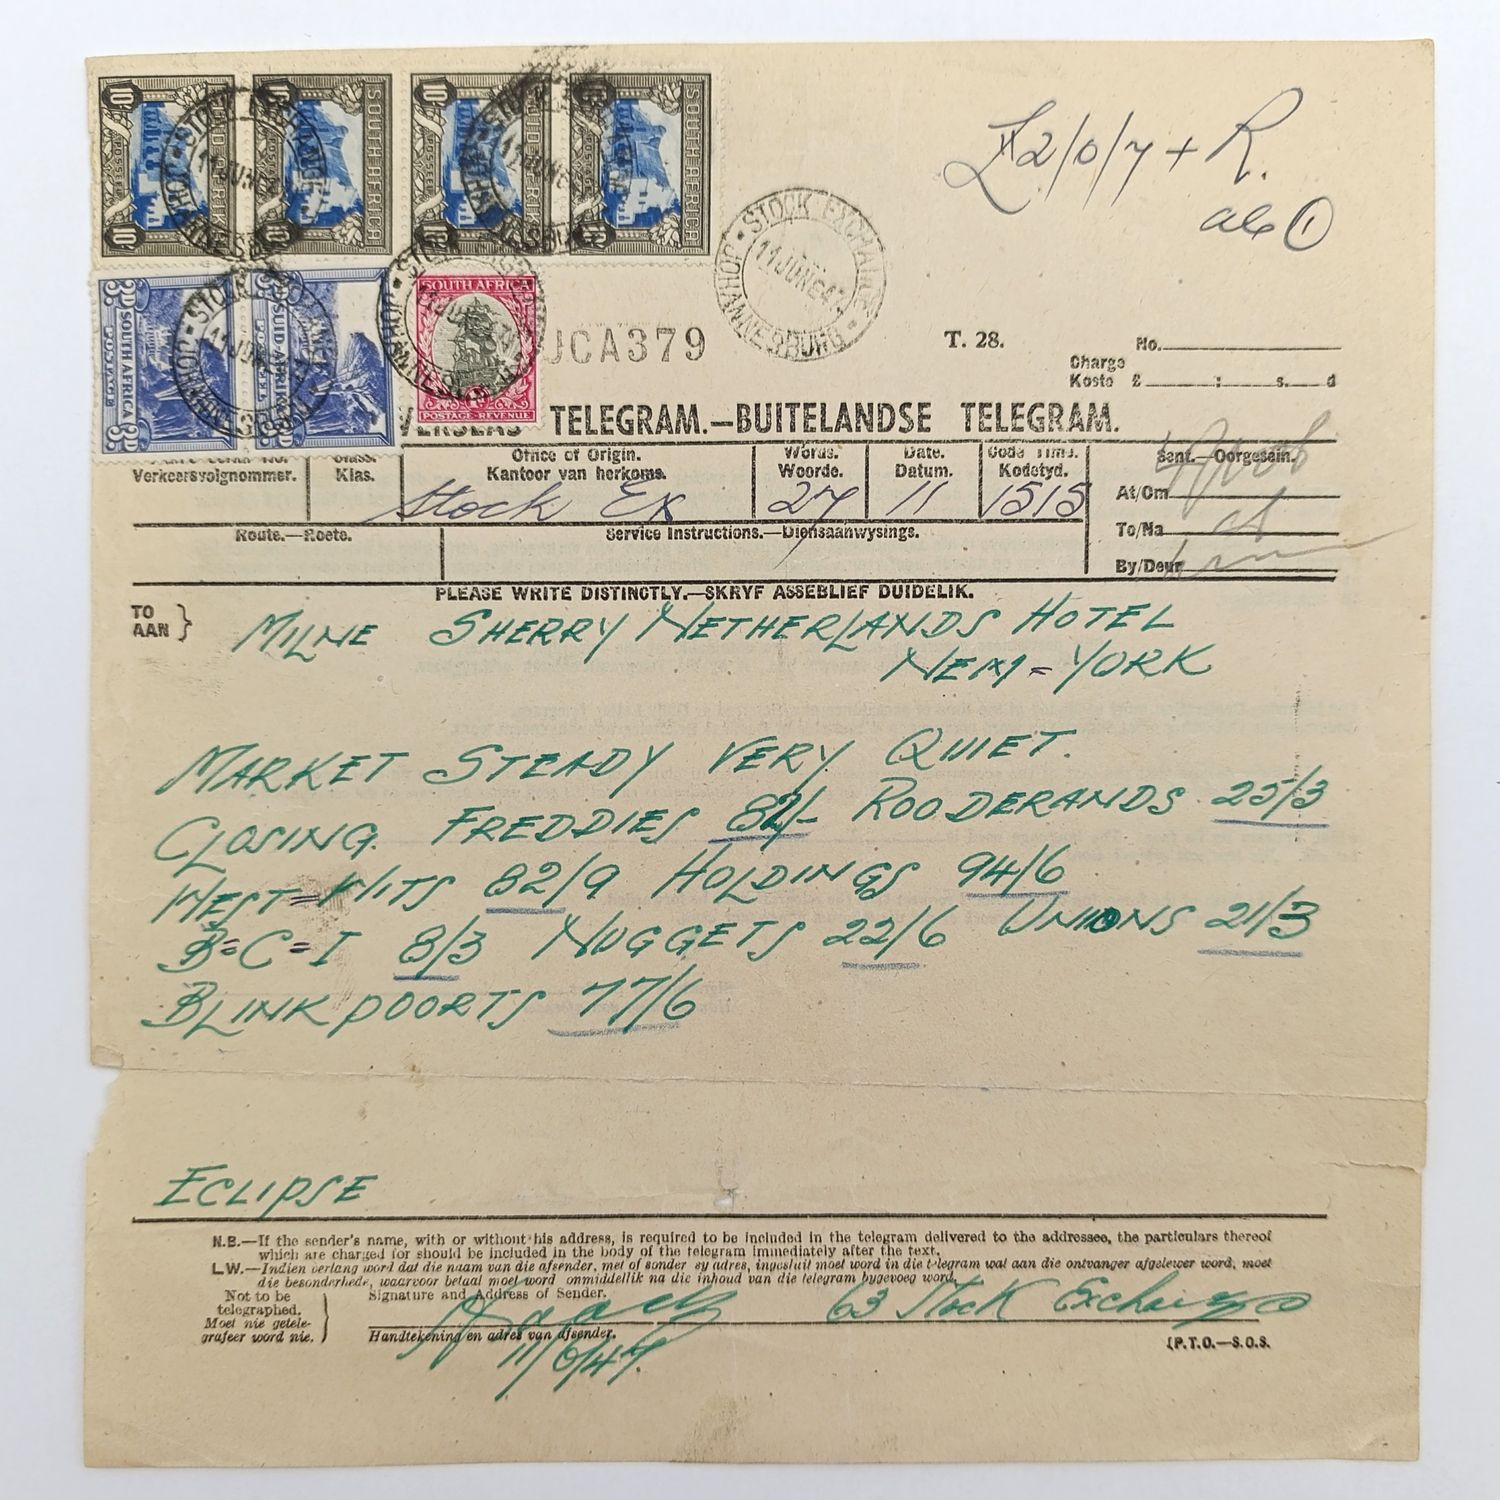 10/- SUID-AFRIKA POSSEËL 10/-
10/- SOUTH AFRICA POSTAGE 10/-
10/- SUID-AFRIKA POSSEËL 10/-
10/- SOUTH AFRICA POSTAGE 10/-
£2/0/7 + R.
①
STOCK EXCHANGE
11 JUNE 47
JOHANNESBURG
3D SOUTH AFRICA POSTAGE 3D
3D SUID-AFRIKA 3D
SOUTH AFRICA
POSTAGE-REVENUE
JCA379
T. 28.
No.
Charge
Koste £ : s. d
OVERSEAS TELEGRAM.—BUITELANDSE TELEGRAM.
Verkeersvolgnommer.
Class.
Klas.
Office of Origin.
Kantoor van herkoms.
Stock Ex
Words.
Woorde.
27
Date.
Datum.
11
Code Time.
Kodetyd.
1515
Sent.—Oorgesein.
At/Om
To/Na
By/Deur
Route.—Roete.
Service Instructions.—Diensaanwysings.
PLEASE WRITE DISTINCTLY.—SKRYF ASSEBLIEF DUIDELIK.
TO
AAN }
MILNE SHERRY NETHERLANDS HOTEL
NEW=YORK
MARKET STEADY VERY QUIET.
CLOSING. FREDDIES 82/- ROODERANDS 25/3
WEST=WITS 82/9 HOLDINGS 94/6
B=C=I 8/3 NUGGETS 22/6 UNIONS 21/3
BLINKPOORTS 77/6
ECLIPSE
N.B.—If the sender's name, with or without his address, is required to be included in the telegram delivered to the addressee, the particulars thereof
which are charged for should be included in the body of the telegram immediately after the text.
L.W.—Indien verlang word dat die naam van die afsender, met of sonder sy adres, ingesluit moet word in die telegram wat aan die ontvanger afgelewer word, moet
die besonderhede, waarvoor betaal moet word onmiddellik na die inhoud van die telegram bygevoeg word.
Not to be
telegraphed.
Moet nie getele-
grafeer word nie. }
Signature and Address of Sender.
63 Stock Exchange
Handtekening en adres van afsender.
11/6/47.
(P.T.O.—S.O.S.